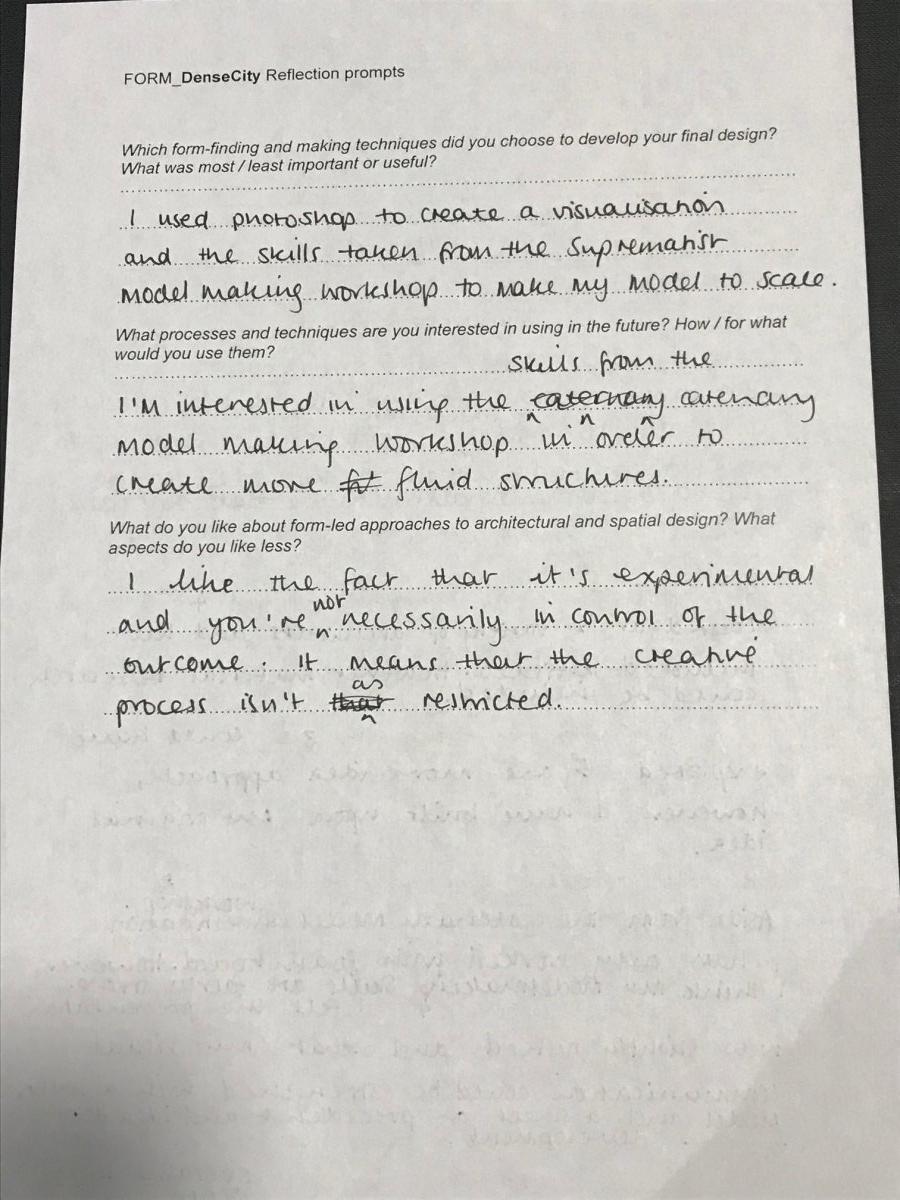 FORM_DenseCity Reflection prompts
Which form-finding and making techniques did you choose to develop your final design?
What was most / least important or useful?
I used photoshop to create a visualisation
and the skills taken from the Suprematist
model making workshop to make my model to scale.
What processes and techniques are you interested in using in the future? How / for what
would you use them?
skills from the
I'm interested in using the caternary catenary
model making workshop in order to
create more ft fluid structures.
What do you like about form-led approaches to architectural and spatial design? What
aspects do you like less?
I like the fact that it's experimental
and you're not necessarily in control of the
outcome. It means that the creative
process isn't that as restricted.